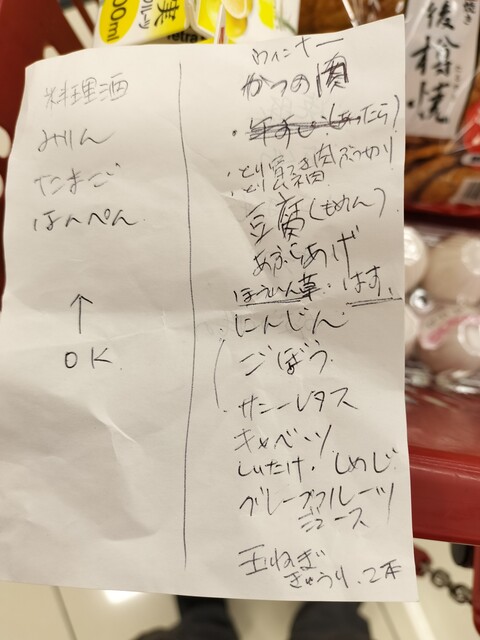 料理酒
みりん
たまご
はんぺん
↑
OK
ウィンナー
かつの肉
(あったら)
とりむね肉
豆腐(もめん)
あぶらあげ
ほうれん草・はす
にんじん
ごぼう
サニーレタス
キャベツ
しいたけ・しめじ
グレープフルーツ
ジュース
玉ねぎ
きゅうり、2本
実
tetra
後樽焼